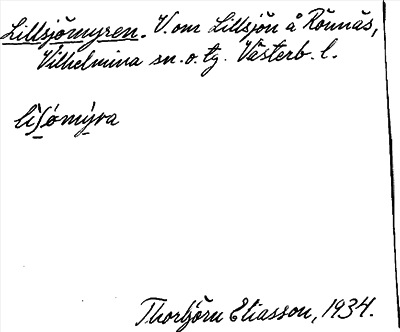 Lillsjömyren. V. om Lillsjön å Rönnäs,
Vilhelmina sn. o. tg. Västerb. l.
Thorbjörn Eliasson, 1934.